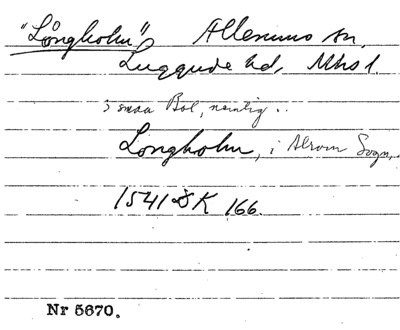 "Longholm" Allerums sn,
Luggude hd, Mhs l.
3 smaa Bol, nemlig ..
Longholm, i Alrom Sogn,.
1541 DK 166.
Nr 5670.